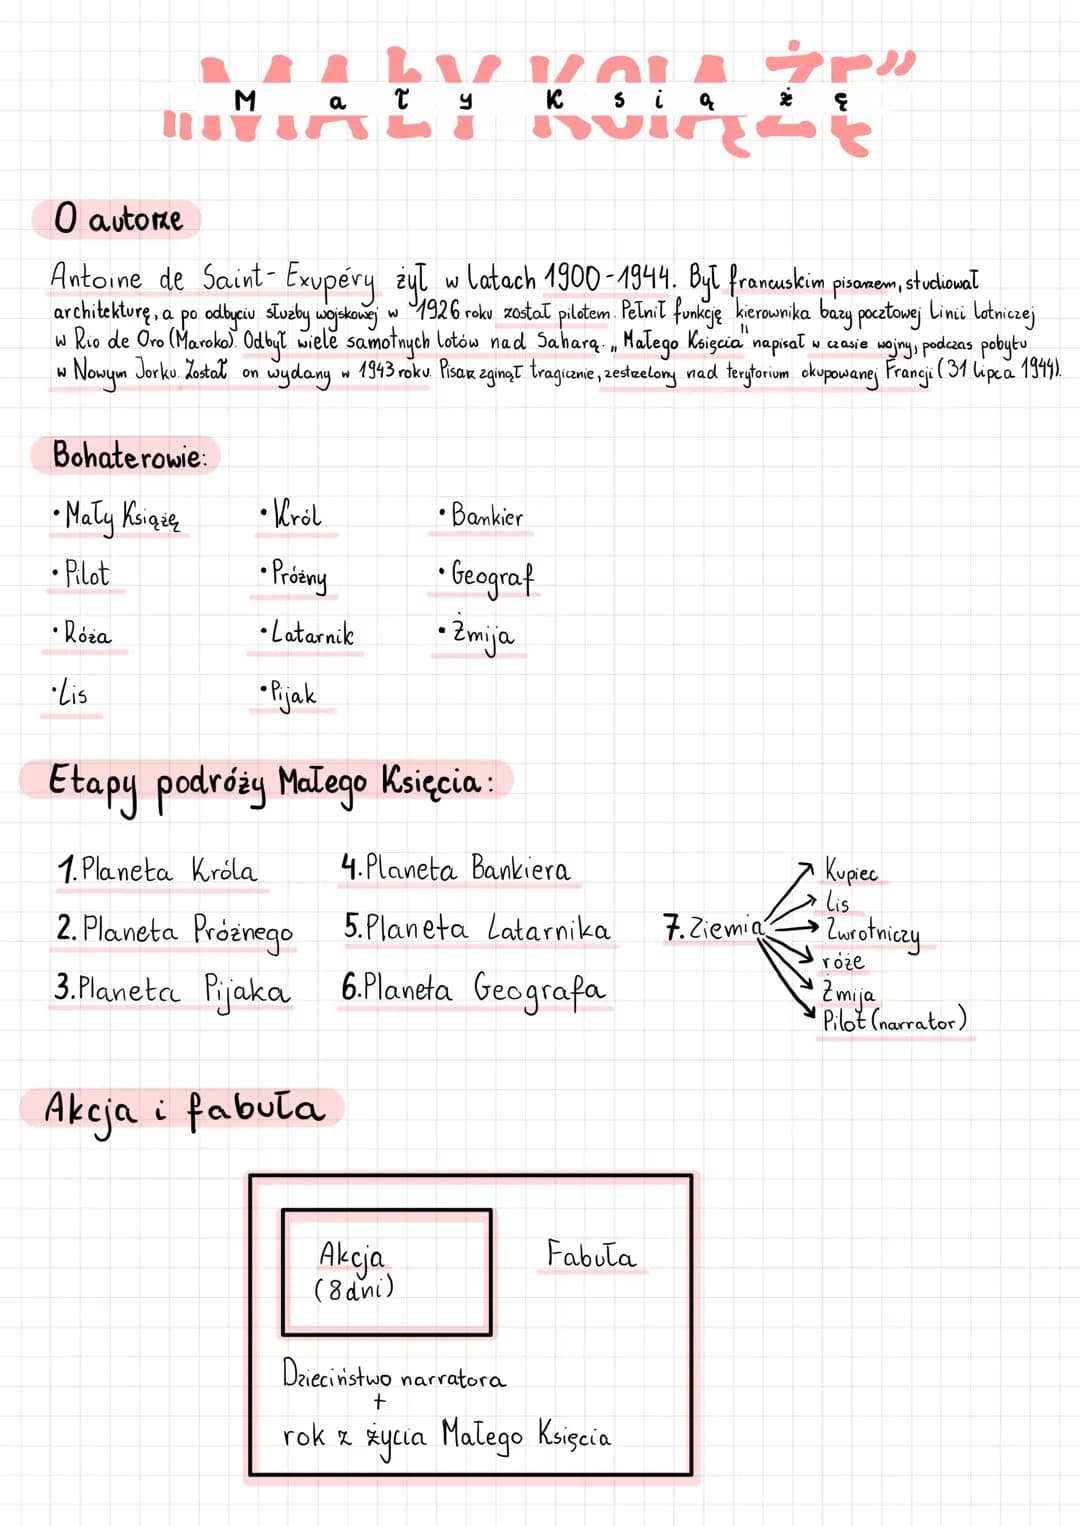 „MAŁY KSIĄŻĘ”
Mały Książę
O autorze
Antoine de Saint-Exupéry żył w latach 1900-1944. Był francuskim pisarzem, studiował
architekturę, a po odbyciu służby wojskowej w 1926 roku został pilotem. Pełnił funkcję kierownika bazy pocztowej Linii Lotniczej
w Rio de Oro (Maroko). Odbył wiele samotnych lotów nad Saharą. „Małego Księcia" napisał w czasie wojny, podczas pobytu
w Nowym Jorku. Został on wydany w 1943 roku. Pisarz zginął tragicznie, zestrzelony nad terytorium okupowanej Francji (31 lipca 1944).
Bohaterowie:
• Mały Książę
• Pilot
• Róża
• Lis
• Król
• Próżny
• Latarnik
• Pijak
• Bankier
• Geograf
• Żmija
Etapy podróży Małego Księcia:
1. Planeta Króla
2. Planeta Próżnego
3. Planeta Pijaka
4. Planeta Bankiera
5. Planeta Latarnika
6. Planeta Geografa
7. Ziemia
Kupiec
Lis
Zwrotniczy
róże
Żmija
Pilot (narrator)
Akcja i fabuła
Akcja
(8 dni)
Fabuła
Dzieciństwo narratora
+
rok z życia Małego Księcia